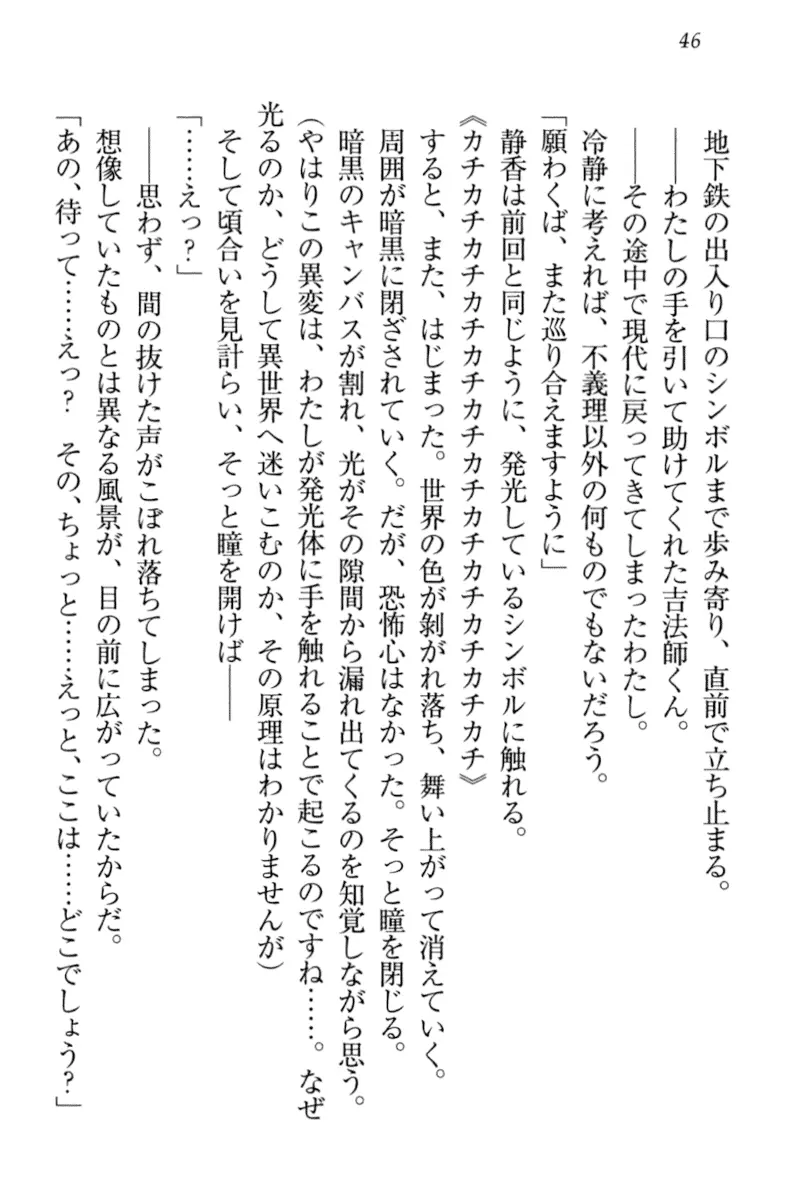 46
地下鉄の出入り口のシンボルまで歩み寄り、直前で立ち止まる。
――わたしの手を引いて助けてくれた吉法師くん。
――その途中で現代に戻ってきてしまったわたし。
冷静に考えれば、不義理以外の何ものでもないだろう。
「願わくば、また巡り合えますように」
静香は前回と同じように、発光しているシンボルに触れる。
《カチカチカチカチカチカチカチカチカチカチカチ》
すると、また、はじまった。世界の色が剝がれ落ち、舞い上がって消えていく。
周囲が暗黒に閉ざされていく。だが、恐怖心はなかった。そっと瞳を閉じる。
暗黒のキャンバスが割れ、光がその隙間から漏れ出てくるのを知覚しながら思う。
(やはりこの異変は、わたしが発光体に手を触れることで起こるのですね……。なぜ
光るのか、どうして異世界へ迷いこむのか、その原理はわかりませんが)
そして頃合いを見計らい、そっと瞳を開けば――
「……えっ？」
――思わず、間の抜けた声がこぼれ落ちてしまった。
想像していたものとは異なる風景が、目の前に広がっていたからだ。
「あの、待って……えっ？　その、ちょっと……えっと、ここは……どこでしょう？」